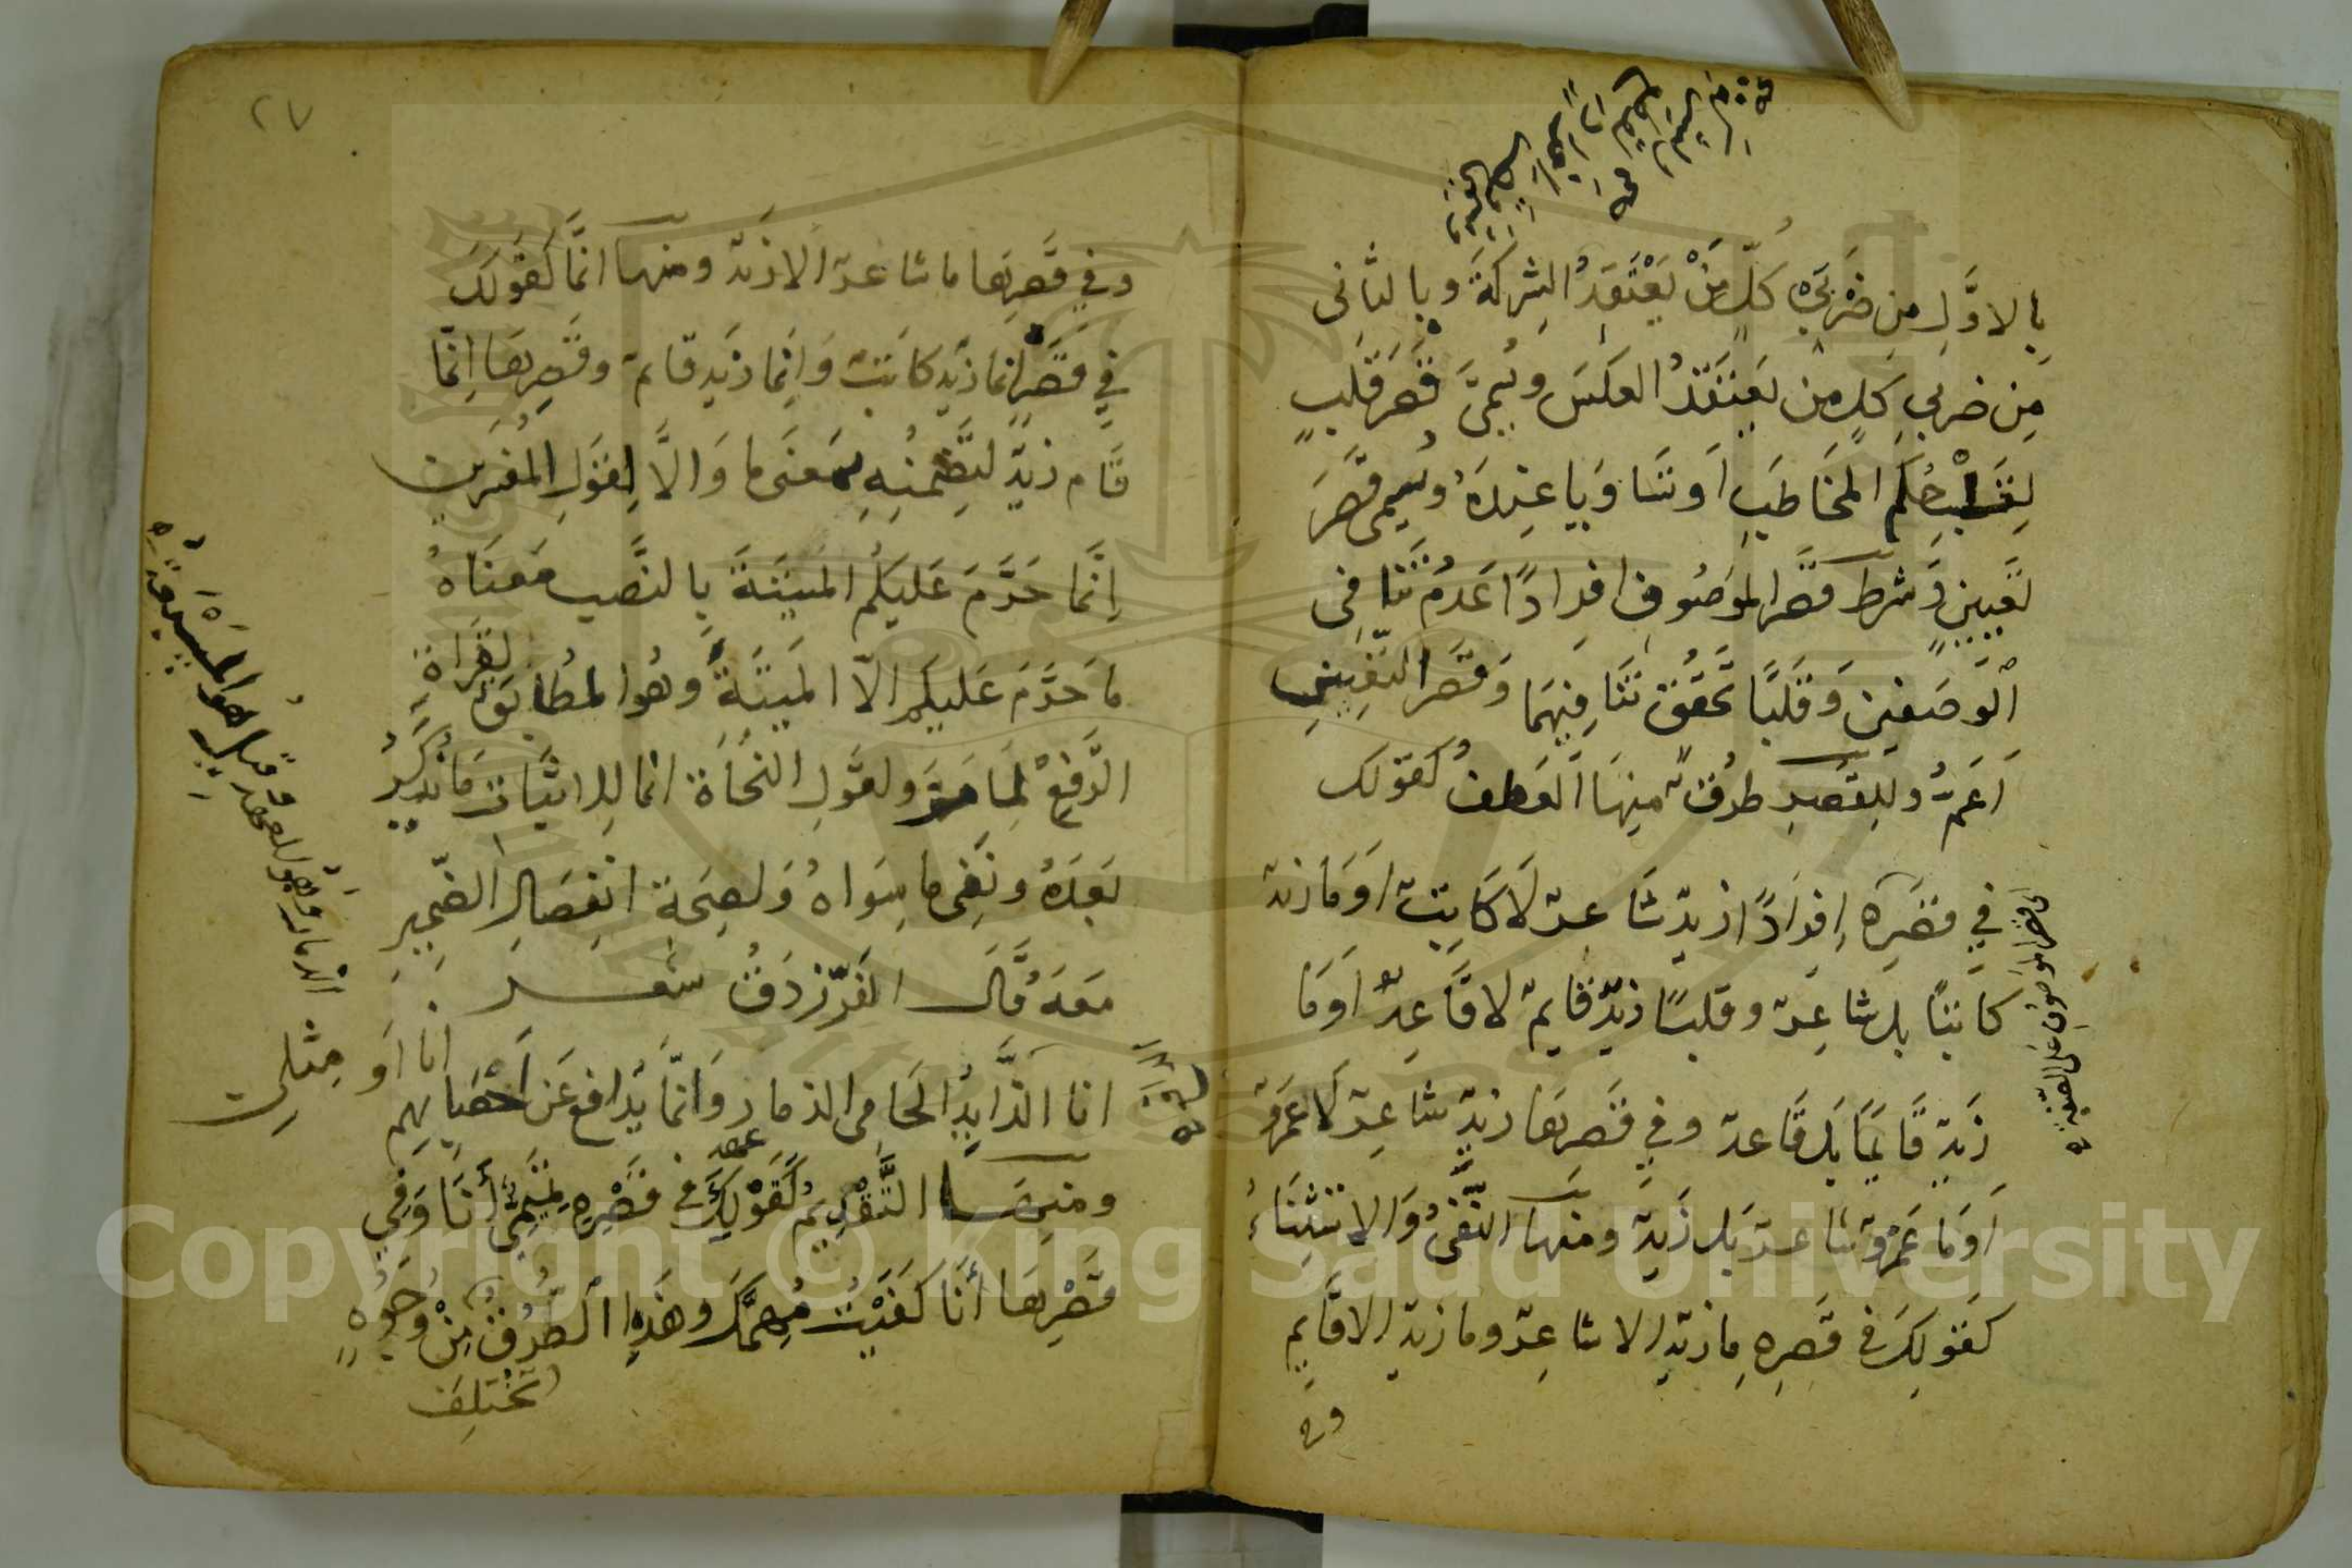 بِالاوَّلِ مِن ضَرْبَيْ كلّ مَنْ يَعْتَقِدُ الشِركَةَ وبالثانى
مِن ضربي كلٍ من يعتقدُ العكسَ ويُسمَّى قصرَ قلبٍ
لِقَلْبِ حُكمِ المخَاطَبِ اَو تسَاوَيا عِندَهُ ويُسمى قصرَ
تعيينٍ وَشرط قصر الموصُوفِ افرادًا عَدمُ تنافى
الوَصفين وَقلبًا تحقُق تنَافيهِمَا وَقصر التعيين
اَعَمُّ وللِقصرِ طرُقٌ منهَا العَطفُ كقولك
في قصره اِفرادًا زيدٌ شاعرٌ لاكَاتبٌ اوَمَا زيدٌ
كاتبًا بل شاعِرٌ وقلبًا زيدٌ قايمٌ لا قاعِدٌ اَوَمَا
زَيدٌ قايمًا بَل قَاعدٌ وفي قصرِهَا زيدٌ شاعِرٌ لَا عَمروٌ
اَوَمَا عَمْروٌ شاعرٌ بَل زَيدٌ ومنها النَّفىُ وَالاستثناءُ
كقولِكَ في قصرِهِ مازيدٌ الا شاعِرٌ وما زيدٌ الا قايم
وفي
اى قصر الموصوف على الصفة
٢٧
وفي قصرِهَا ما شاعرٌ الا زيدٌ ومنها انَّما كقولكَ
في قصرهِ انما زيدٌ كاتبٌ وَانِما زيدٌ قايمٌ وقصرِهَا انِّما
قام زيدٌ لتَضمنِهِ مَعنَى ما وَالاَّ لِقولِ المفسرين
اِنَّما حَرَّمَ عَليكُم الميتَةَ بِالنَّصبِ مَعنَاهُ
مَا حَرَّمَ عَليكم الاّ الميتَةَ وَهُو المطابق لقراة
الرَّفع لمَا مَرَّ ولقولِ النحَاة انما لِاثبَات مَا يُذكَرُ
بَعدَهُ ونَفىِ ما سِوَاهُ وَلصِحَةِ انفِصَالِ الضمير
مَعَهُ قَالَ الفرَزدَقُ شعر
انا الذَّايدُ الحَامى الذمار وَانمّا يُدافع عَن اَحْسَابِهم انا اَو مِثلى
ومنهَا التَّقْدِيمُ كَقَوْلِكَ في قَصْرِهِ تَمِيمِيٌّ أَنَا وَفِي
قَصْرِهَا أَنَا كَفَيْتُ مُهِمَّكَ وهَذِهِ الطُّرُقُ مِنْ وُجُوهٍ
تَختلِفُ